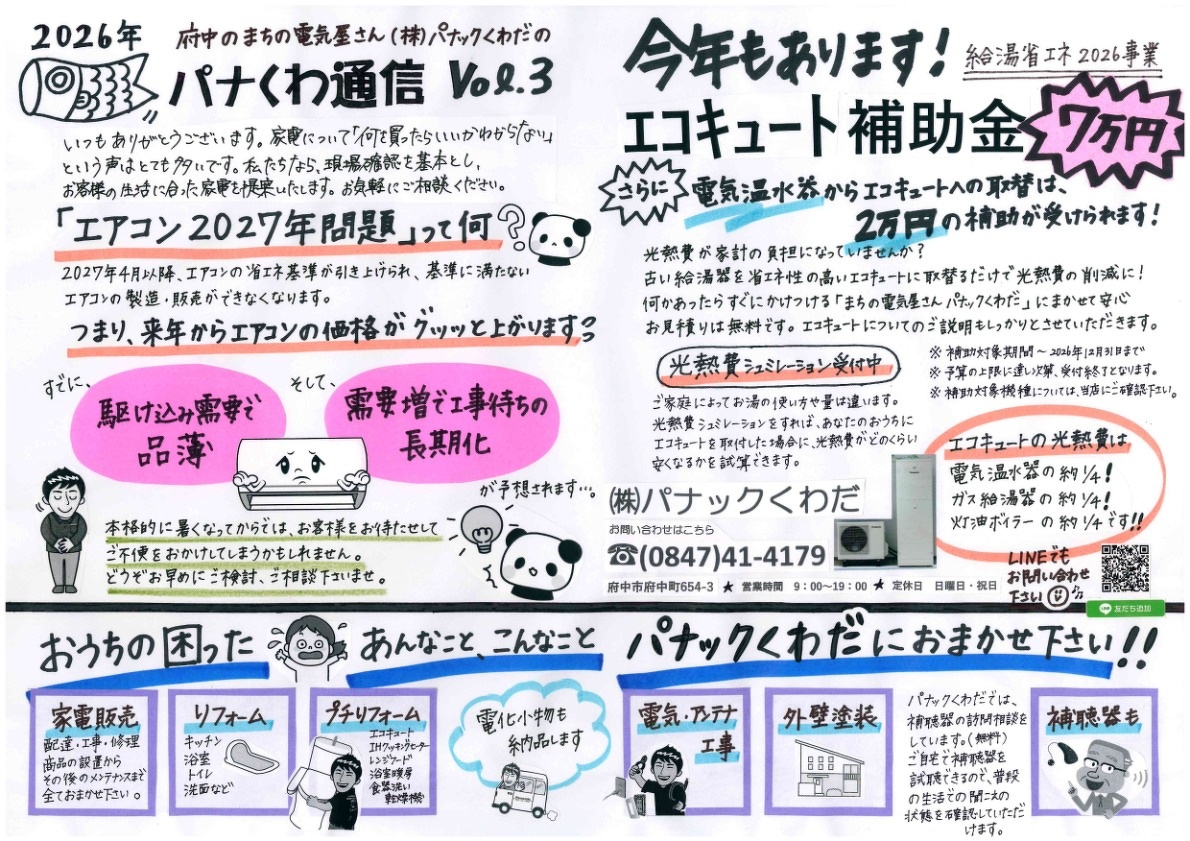 2026年
府中のまちの電気屋さん(株)パナックくわだの
パナくわ通信 Vol.3
いつもありがとうございます。家電について「何を買ったらいいかわからない」
という声はとても多いです。私たちなら、現場確認を基本とし、
お客様の生活に合った家電を提案いたします。お気軽にご相談ください。
「エアコン2027年問題」って何?
2027年4月以降、エアコンの省エネ基準が引き上げられ、基準に満たない
エアコンの製造・販売ができなくなります。
つまり、来年からエアコンの価格がグッッと上がります?
すでに、
駆け込み需要で
品薄
そして、
需要増で工事待ちの
長期化
が予想されます…。
本格的に暑くなってからでは、お客様をお待たせして
ご不便をおかけしてしまうかもしれません。
どうぞお早めにご検討、ご相談下さいませ。
今年もあります!
給湯省エネ2026事業
エコキュート補助金
7万円
さらに
電気温水器からエコキュートへの取替は、
2万円の補助が受けられます!
光熱費が家計の負担になっていませんか?
古い給湯器を省エネ性の高いエコキュートに取替るだけで光熱費の削減に!
何かあったらすぐにかけつける「まちの電気屋さん パナックくわだ」にまかせて安心
お見積りは無料です。エコキュートについてのご説明もしっかりとさせていただきます。
光熱費シュミレーション受付中
※ 補助対象期間~2026年12月31日まで
※ 予算の上限に達し次第、受付終了となります。
※ 補助対象機種については、当店にご確認下さい。
ご家庭によってお湯の使い方や量は違います。
光熱費シュミレーションをすれば、あなたのおうちに
エコキュートを取付した場合に、光熱費がどのくらい
安くなるかを試算できます。
エコキュートの光熱費は
電気温水器の約1/4!
ガス給湯器の約1/4!
灯油ボイラーの約1/4です!!
(株)パナックくわだ
お問い合わせはこちら
☎(0847)41-4179
府中市府中町654-3 ★ 営業時間 9:00~19:00 ★ 定休日 日曜日・祝日
LINEでも
お問い合わせ
下さい
LINE 友だち追加
おうちの困った あんなこと、こんなこと パナックくわだにおまかせ下さい!!
家電販売
配達・工事・修理
商品の設置から
その後のメンテナンスまで
全ておまかせ下さい。
リフォーム
キッチン
浴室
トイレ
洗面など
プチリフォーム
エコキュート
IHクッキングヒーター
レンジフード
浴室暖房
食器洗い
乾燥機
電化小物も
納品します
電気・アンテナ
工事
外壁塗装
パナックくわだでは、
補聴器の訪問相談を
しています。(無料)
ご自宅で補聴器を
試聴できるので、普段
の生活での聞こえの
状態を確認していただ
けます。
補聴器も